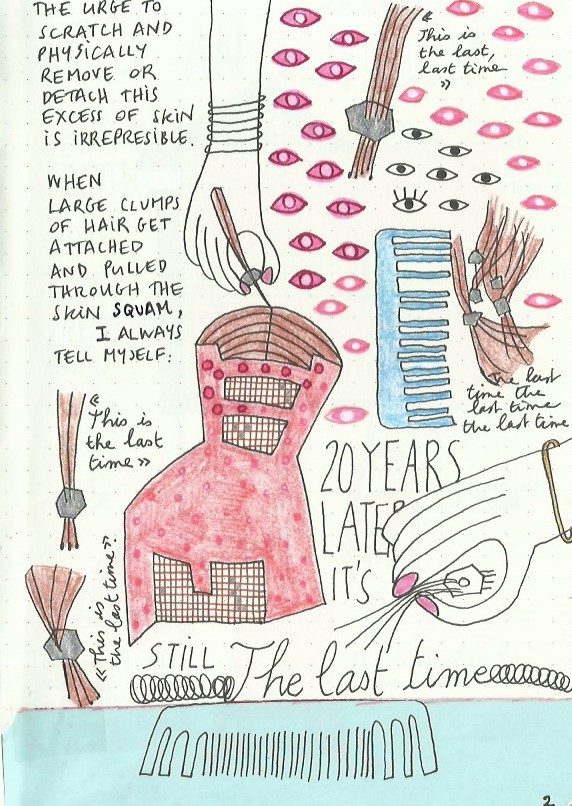 THE URGE TO
SCRATCH AND
PHYSICALLY
REMOVE OR
DETACH THIS
EXCESS OF SKIN
IS IRREPRESIBLE.
WHEN
LARGE CLUMPS
OF HAIR GET
ATTACHED
AND PULLED
THROUGH THE
SKIN SQUAM,
I ALWAYS
TELL MYSELF:
« This is
the last,
last time
»
The last
time the
last time
the last time
« This is
the last
time »
« This is
the last time ».
20 YEARS
LATER
IT'S
STILL The last time
2